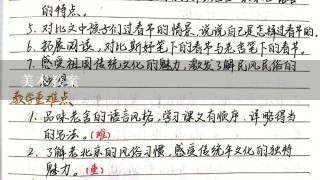 的特点。
5. 对比文中孩子们过春节的情景,说说自己是怎样过春节的。
6. 拓展阅读,对比斯妤笔下的春节与老舍笔下的春节。
7. 感受祖国传统文化的魅力,激发了解民风民俗的
美术教案
教学重难点
1. 品味老舍的语言风格,学习课文有顺序、详略得当
的写法。(难)
2. 了解老北京的风俗习惯,感受传统年文化的独特
魅力。(重)